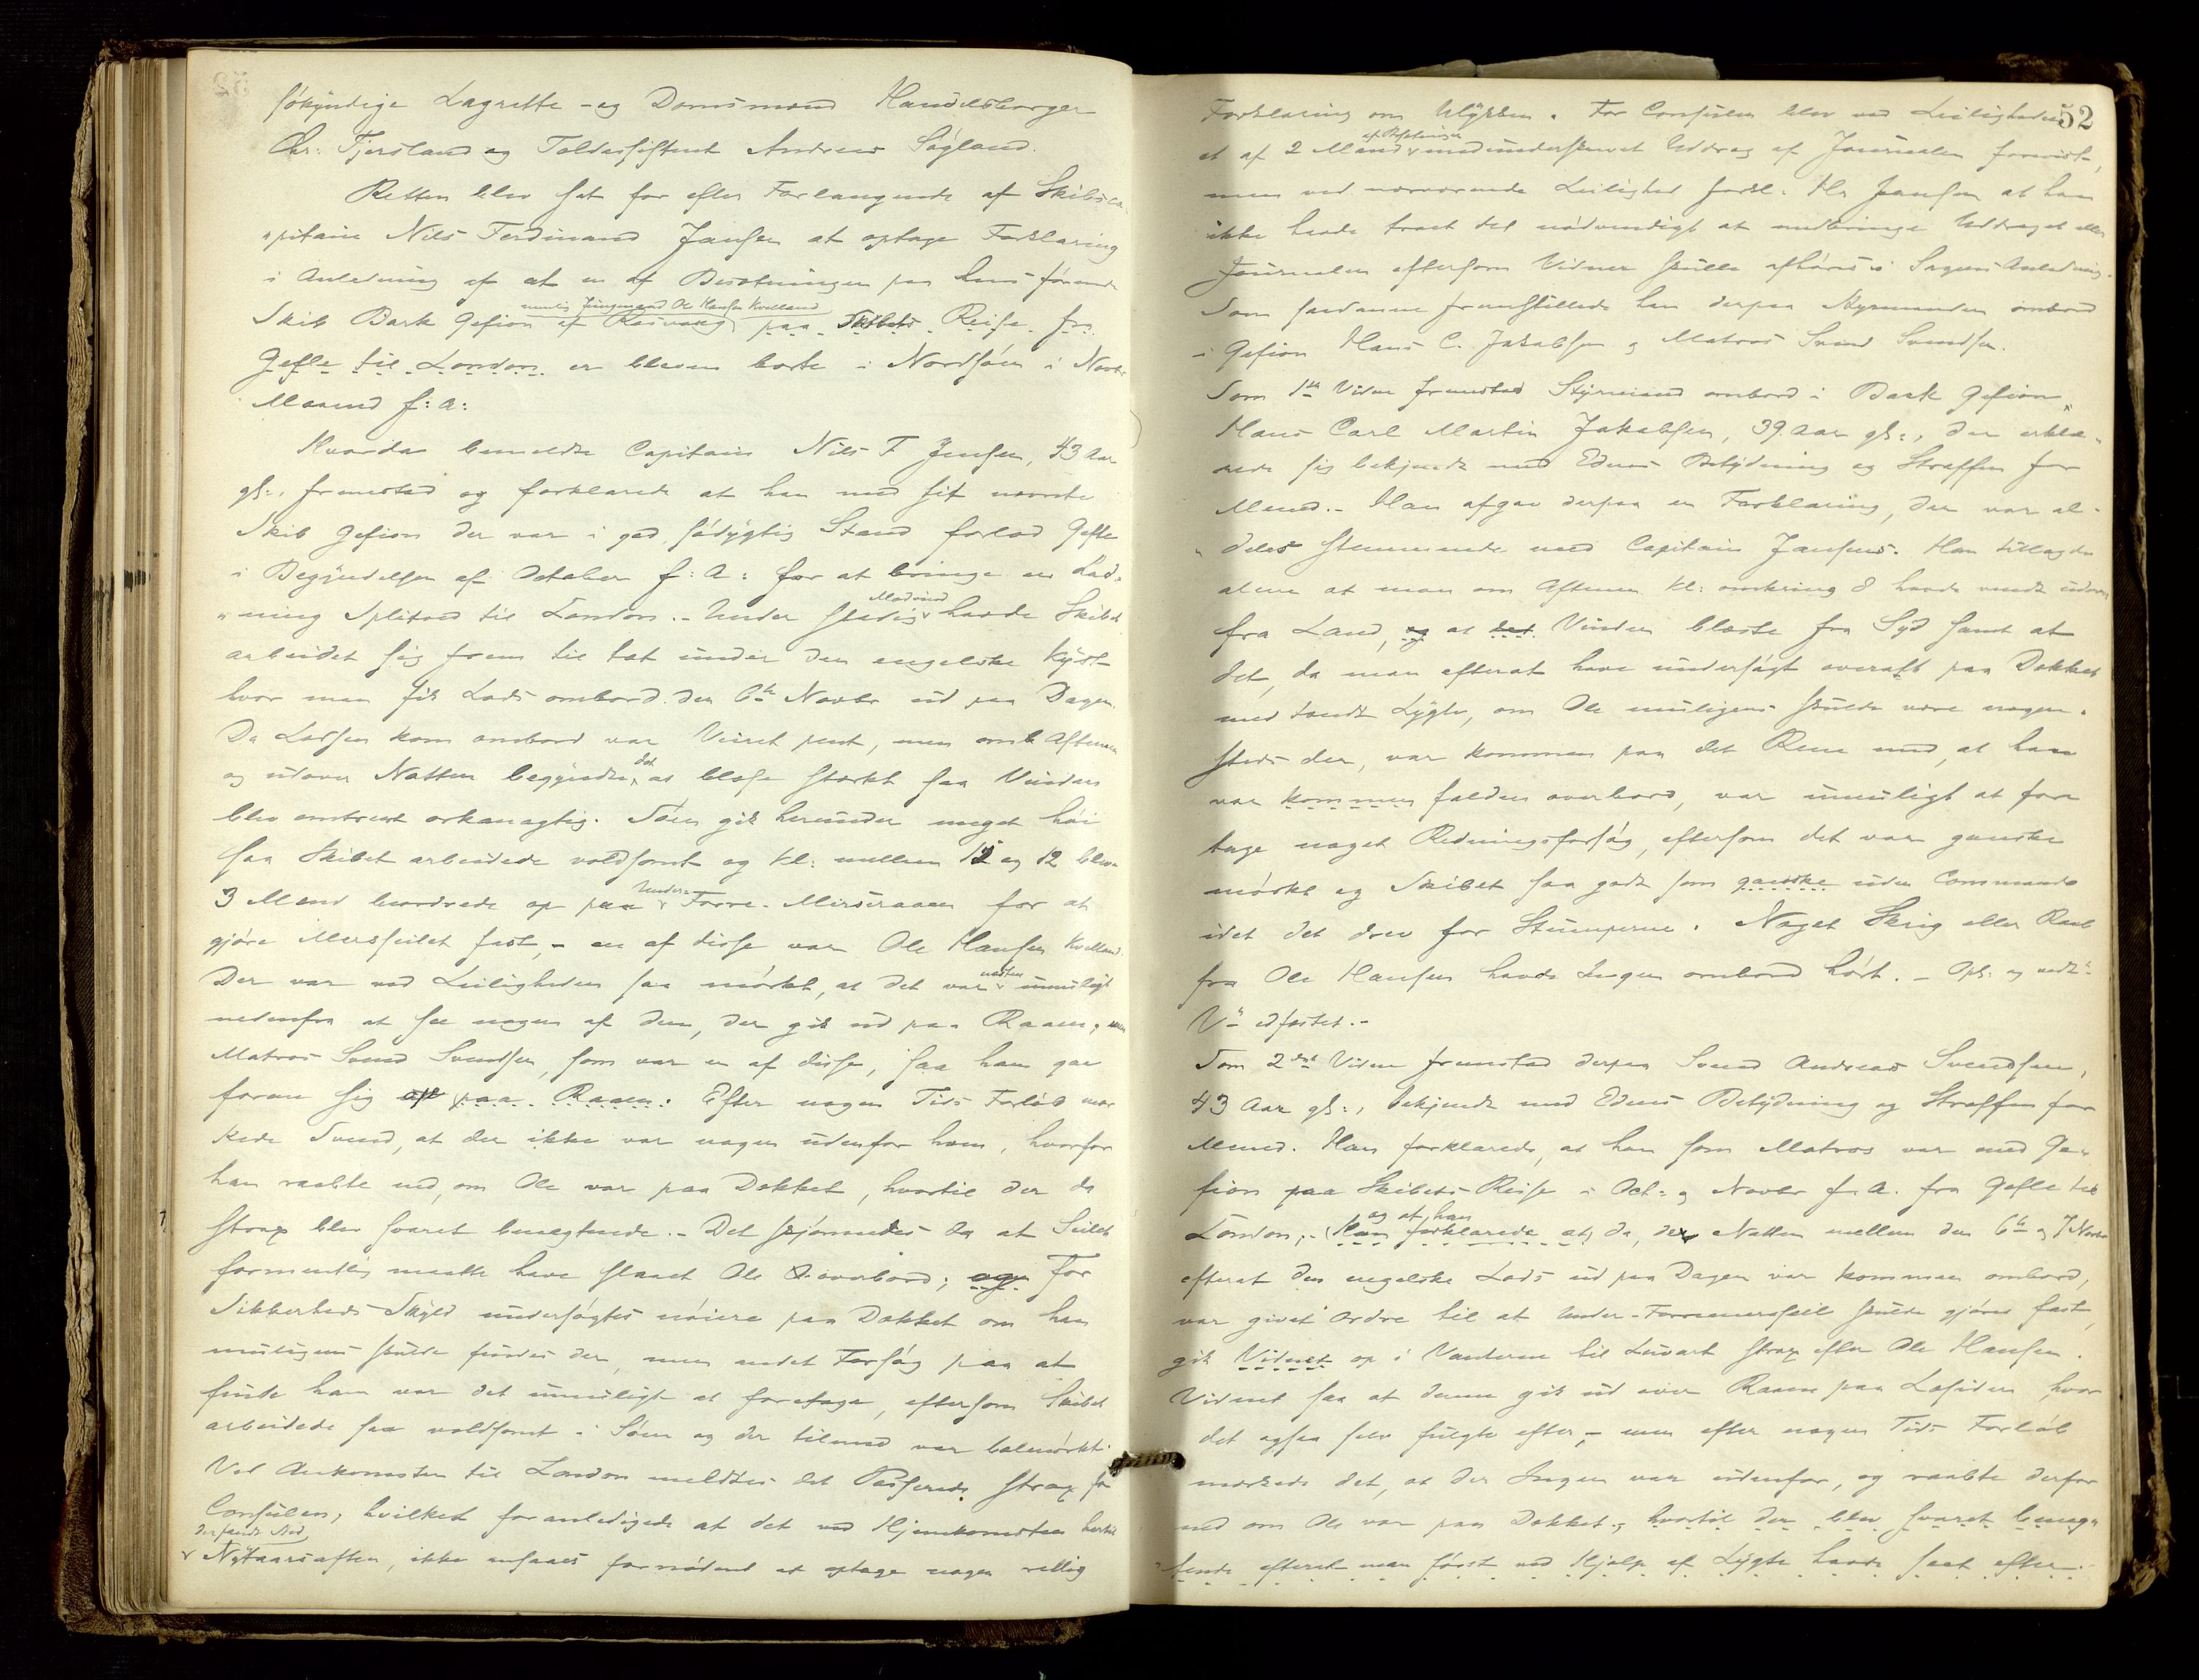 søkyndige Lagrette- og Domsmænd Handelsborger
Chr: Tjersland og Toldassistent Andreas Søgland.
Retten blev sat for efter Forlangende af Skibsca-
"pitain Nils Ferdinand Jansen at optage Forklaring
i Anledning af at en af Besætningen paa hans førende
nemlig Jungmand Ole Hansen Kvelland
Skib Bark Gefion af Rasvaag paa Skibets Reise fra
Gefle til London er bleven borte i Nordsøen i Novbr
Maaned f: A:
Hvorda bemeldte Capitain Nils F Jansen, 43 Aar
gl:, fremstod og forklarede at han med sit nævnte
Skib Gefion der var i god sødygtig Stand forlod Gefle
i Begyndelsen af October f: A: for at bringe en Lad-
"ning Splitved til London. - Under stadig Modvind havde Skibet
arbeidet sig frem til tæt under den engelske Kyst
hvor man fik Lods ombord den 6te Novbr ud paa Dagen.
Da Lodsen kom ombord var Veiret pent, men om Aftenen
og udover Natten begyndte det at blæse stærkt saa Vinden
blev omtrent orkanagtig. Søen gik herunder meget høi
saa Skibet arbeidede voldsomt og Kl: mellem 11 og 12 blev
3 Mænd beordrede op paa Under-Forre-Merseraaen for at
gjøre Mersseilet fast, - en af disse var Ole Hansen Kvelland.
Der var ved Leiligheden saa mørkt, at det var næsten umuligt
nedenfra at see nogen af dem, der gik ud paa Raaen, men
Matros Svend Svendsen, som var en af disse, saa ham gaa
foran sig op paa Raaen. Efter nogen Tids Forløb mær
kede Svend, at der ikke var nogen udenfor ham, hvorfor
han raabte ned, om Ole var paa Dækket, hvortil der da
strax blev svaret benegtende. - Det skjønnedes da at Seilet
formentlig maatte have slaaet Ole overbord; og For
Sikkerheds Skyld undersøgtes nøiere paa Dækket om han
muligens skulde findes der, men andet Forsøg paa at
finde ham var det umuligt at foretage, eftersom Skibet
arbeidede saa voldsomt i Søen og der tilmed var bælmørkt.
Ved Ankomsten til London meldtes det Passerede strax for
Consulen, hvilket foranledigede at det ved Hjemkomsten hertil
der fandt Sted
Nytaarsaften, ikke ansaaes fornødent at optage nogen retlig
52
Forklaring om Ulykken. For Consulen blev ved Leiligheden
et af 2 Mænd af Besætningen medunderskrevet Uddrag af Journalen forevist,
men ved nærværende Leilighed forkl. Hr Jansen at han
ikke havde troet det nødvendigt at medbringe Uddraget eller
Journalen eftersom Vidner skulle afhøres i Sagens Anledning.
Som saadanne fremstillede han derpaa Styrmanden ombord
i Gefion Hans C. Jakobsen og Matros Svend Svendsen.
Som 1ste Vidne fremstod Styrmand ombord i Bark Gefion,
Hans Carl Martin Jakobsen, 39 Aar gl:, der erklæ-
rede sig bekjendt med Edens Betydning og Straffen for
Mened. - Han afgav derpaa en Forklaring, der var al-
"deles stemmende med Capitain Jansens. Han tillagde
alene at man om Aftenen Kl: omkring 8 havde vendt udover
fra Land, og at det Vinden blæste fra Syd samt at
det, da man efterat have undersøgt overalt paa Dækket
med tændt Lygte, om Ole muligens skulde være nogen-
steds der, var kommen paa det Rene med, at han
var kommen falden overbord, var umuligt at fore
tage noget Redningsforsøg, eftersom det var ganske
mørkt og Skibet saa godt som ganske uden Commando
idet det drev for Stumperne. Noget Skrig eller Raab
fra Ole Hansen havde Ingen ombord hørt. - Opl: og vedt:
Vt edfæstet. -
Som 2det Vidne fremstod derpaa Svend Andreas Svendsen,
43 Aar gl:, bekjendt med Edens Betydning og Straffen for
Mened. Han forklarede, at han som Matros var med Ge-
fion paa Skibets Reise i Oct: og Novbr f. A. fra Gefle til
London, - (Han forklarede at) og at han da, der Natten mellem den 6te og 7 Novbr
efterat den engelske Lods ud paa Dagen var kommen ombord,
var givet Ordre til at Under-Forremersseil skulde gjøres fast,
gik Vidnet op i Vanterne til Luvart strax efter Ole Hansen.
Vidnet saa at denne gik ud over Raaen paa Læsiden, hvor
det ogsaa selv fulgte efter, - men efter nogen Tids Forløb
mærkede det, at der Ingen var udenfor, og raabte derfor
ned om Ole var paa Dækket, hvortil der blev svaret benæg-
"tende efterat man først ved Hjælp af Lygte havde seet efter.